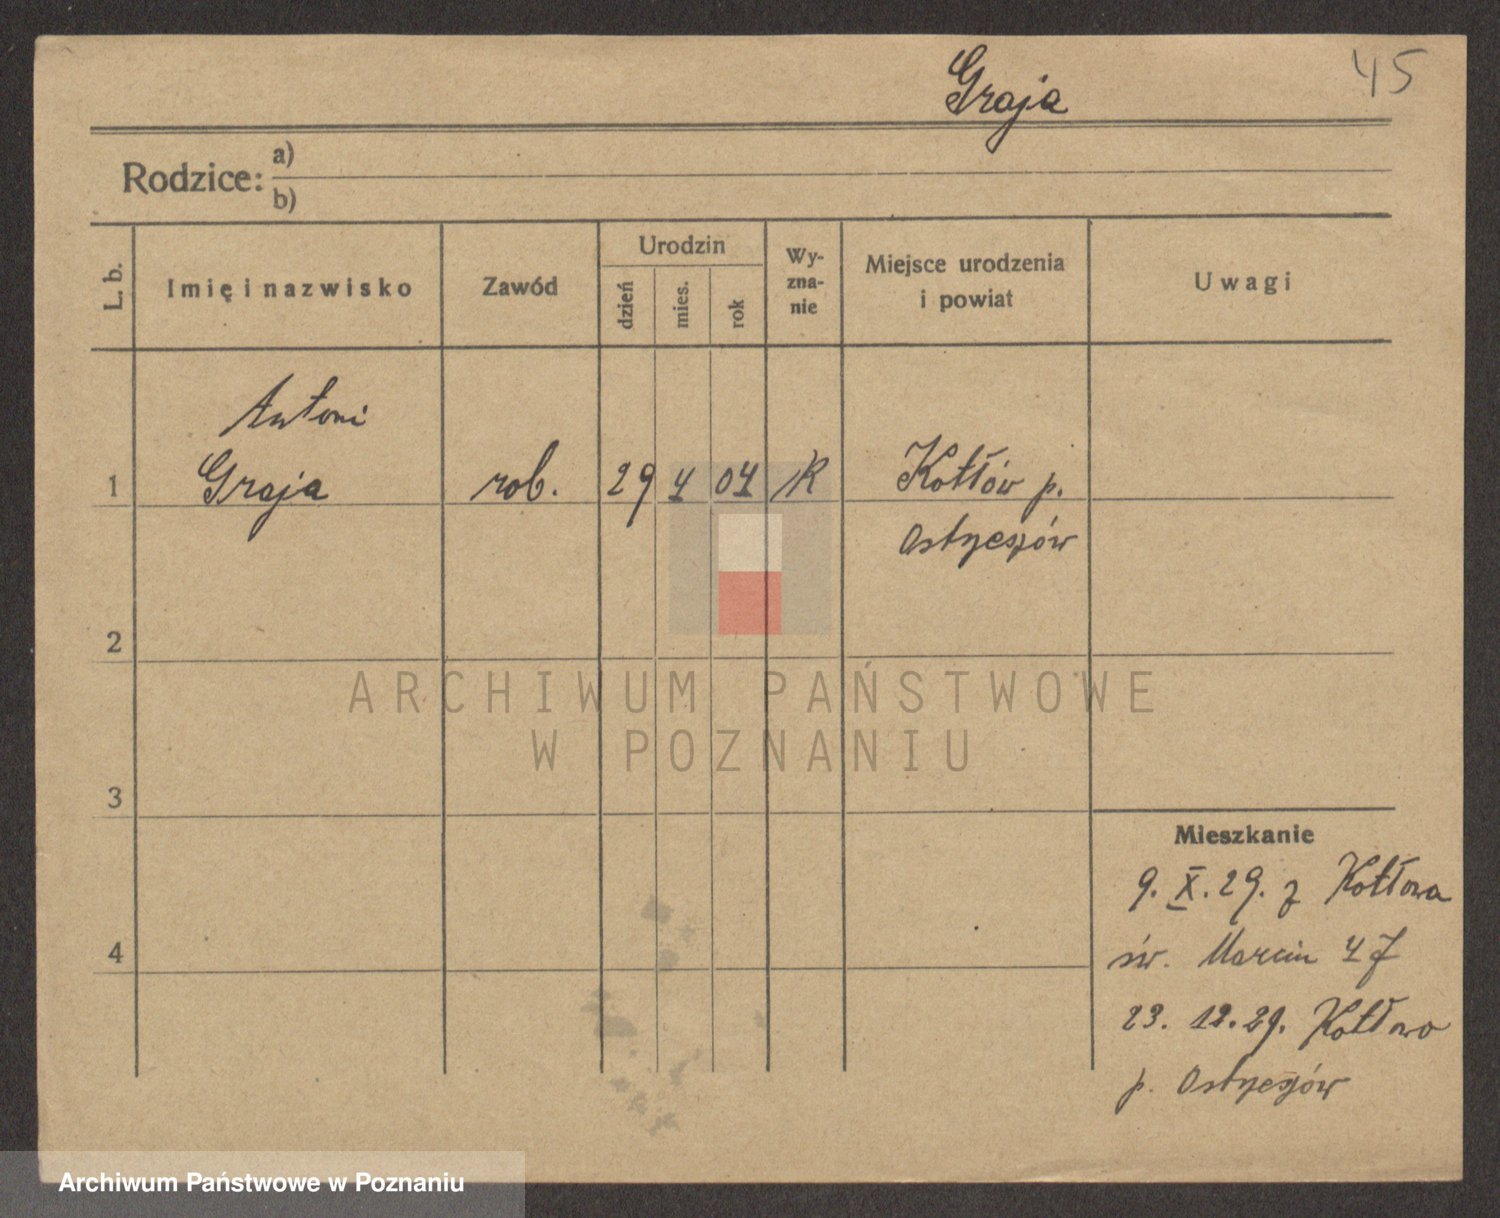 Graja
45
Rodzice:
a)
b)
L. b.
Imię i nazwisko
Zawód
Urodzin
dzień
mies.
rok
Wy-
zna-
nie
Miejsce urodzenia
i powiat
Uwagi
Antoni
1 Graja rob. 29 4 04 K Kotłów p.
Ostrzeszów
2
3
4
Mieszkanie
9. X. 29. z Kotłowa
św. Marcin 47
23. 12. 29. Kotłowo
p. Ostrzeszów
ARCHIWUM PAŃSTWOWE
W POZNANIU
Archiwum Państwowe w Poznaniu